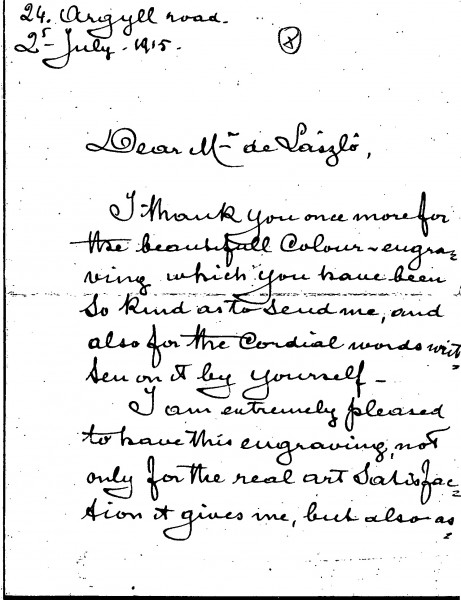 24. Argyll road.
2 July. 1915.
8
Dear Mr de László,
I thank you once more for
the beautifull Colour-engra=
ving which you have been
so kind as to send me, and
also for the Cordial words writ=
ten on it by yourself -
I am extremely pleased
to have this engraving, not
only for the real art Satisfac=
tion it gives me, but also as=